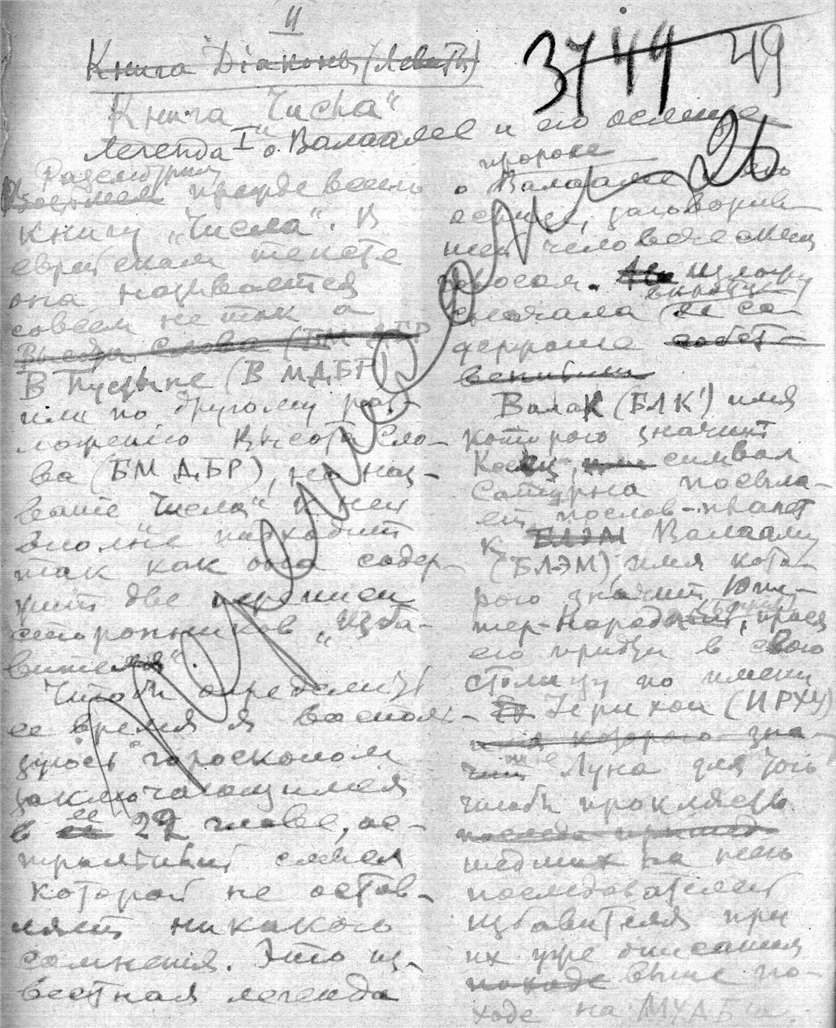 II
Книга Діаконы (Левиты)
3744 49
Книга "Числа"
I
Легенда о Валааме и его ослице
Разсмотрим
прежде всего
книгу „Числа". В
еврейском тексте
она называется
совсем не так а
Высота Слова (БМ ДБР
В Пустыне (В МДБР)
или по другому раз-
ложенію Высота Сло-
ва (БМ ДБР), но наз-
ваніе "Числа" к ней
вполне подходит
так как она содер-
жит две переписи
сторонников „Изба-
вителя".
Чтобы определить
ее время я восполь-
зуюсь гороскопом
заключающимся
в ее 22 главе, ас-
тральный смысл
которой не остав-
ляет никакого
сомнения. Это из-
вестная легенда
пророке
о Валааме и его
ослице, заговорив-
шей человеческим
голосом. Изложу
вкратце
сначала ее со-
держание собст-
венными
Валак (БЛК) имя
которого значит
символ
Сатурна посыла-
ет послов-планет
к БЛЭМ Валааму
(БЛЭМ) имя кото-
рого значит Юпи-
тер-Народный, прося
его придти в свою
столицу по имени
Іерихон (ИРХУ)
имя которого зна-
чит Луна для того
чтобы проклясть
шедших на него
последователей
Избавителя при
их уже описанном
походе выше по-
ходе на
Переписано 25